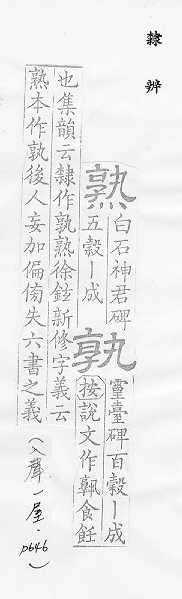 隸辨
熟 白石神君碑
五穀丨成
孰 靈臺碑百穀丨成
按說文作𩱷食飪
也集韻云隸作孰熟徐鉉新修字義云
熟本作孰後人妄加偏傍失六書之義
(入聲一屋．p646)